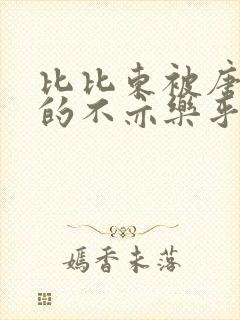 比比东被唐
的不亦乐乎
嫣香未落